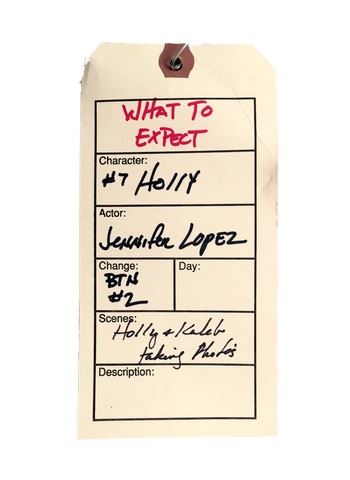 WHAT TO
EXPECT
Character:
#7 HOLLY
Actor:
JENNIFER LOPEZ
Change:
Day:
BTN
#2
Scenes:
Holly & Kaleb
taking Photos
Description: